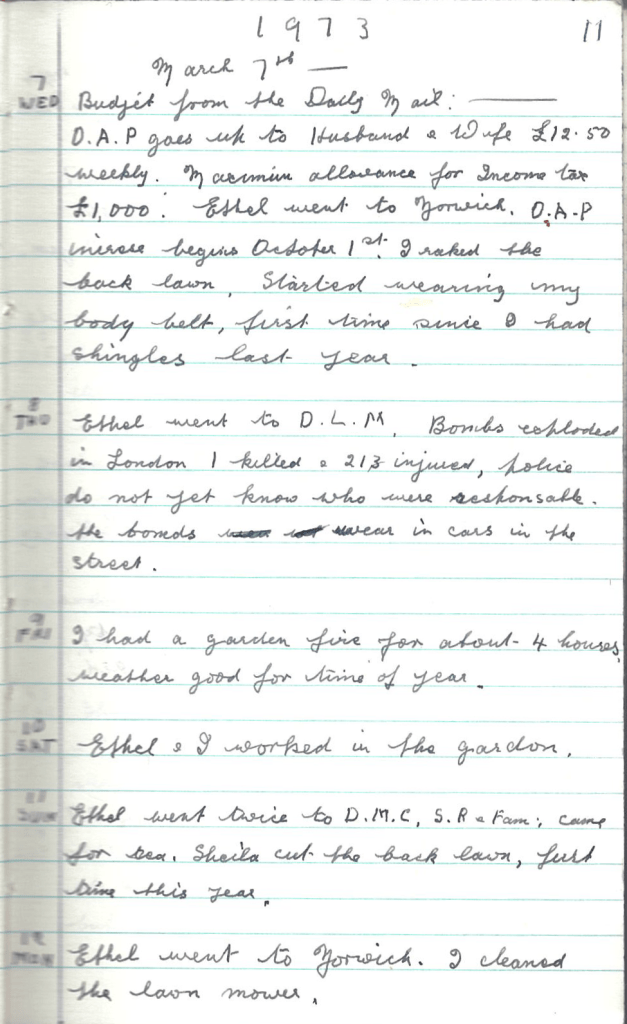 1973 11
March 7th —
7
WED Budjet from the Daily Mail: —
O.A.P goes up to Husband & Wife £12.50
weekly. Maximin allowance for Income tax
£1,000. Ethel went to Norwich. O.A.P
increse begins October 1st. I raked the
back lawn, Started wearing my
body belt, first time since I had
shingles last year.
8
THU Ethel went to D.L.M, Bombs exploded
in London 1 killed & 213 injured, police
do not yet know who were responsable.
the bombs wear in cars in the
street.
9
FRI I had a garden fire for about 4 houes,
weather good for time of year.
10
SAT Ethel & I worked in the gardon.
11
SUN Ethel went twice to D.M.C, S.R & Fam; came
for tea. Sheila cut the back lawn, furst
time this year.
12
MON Ethel went to Norwich. I cleaned
the lawn mower.